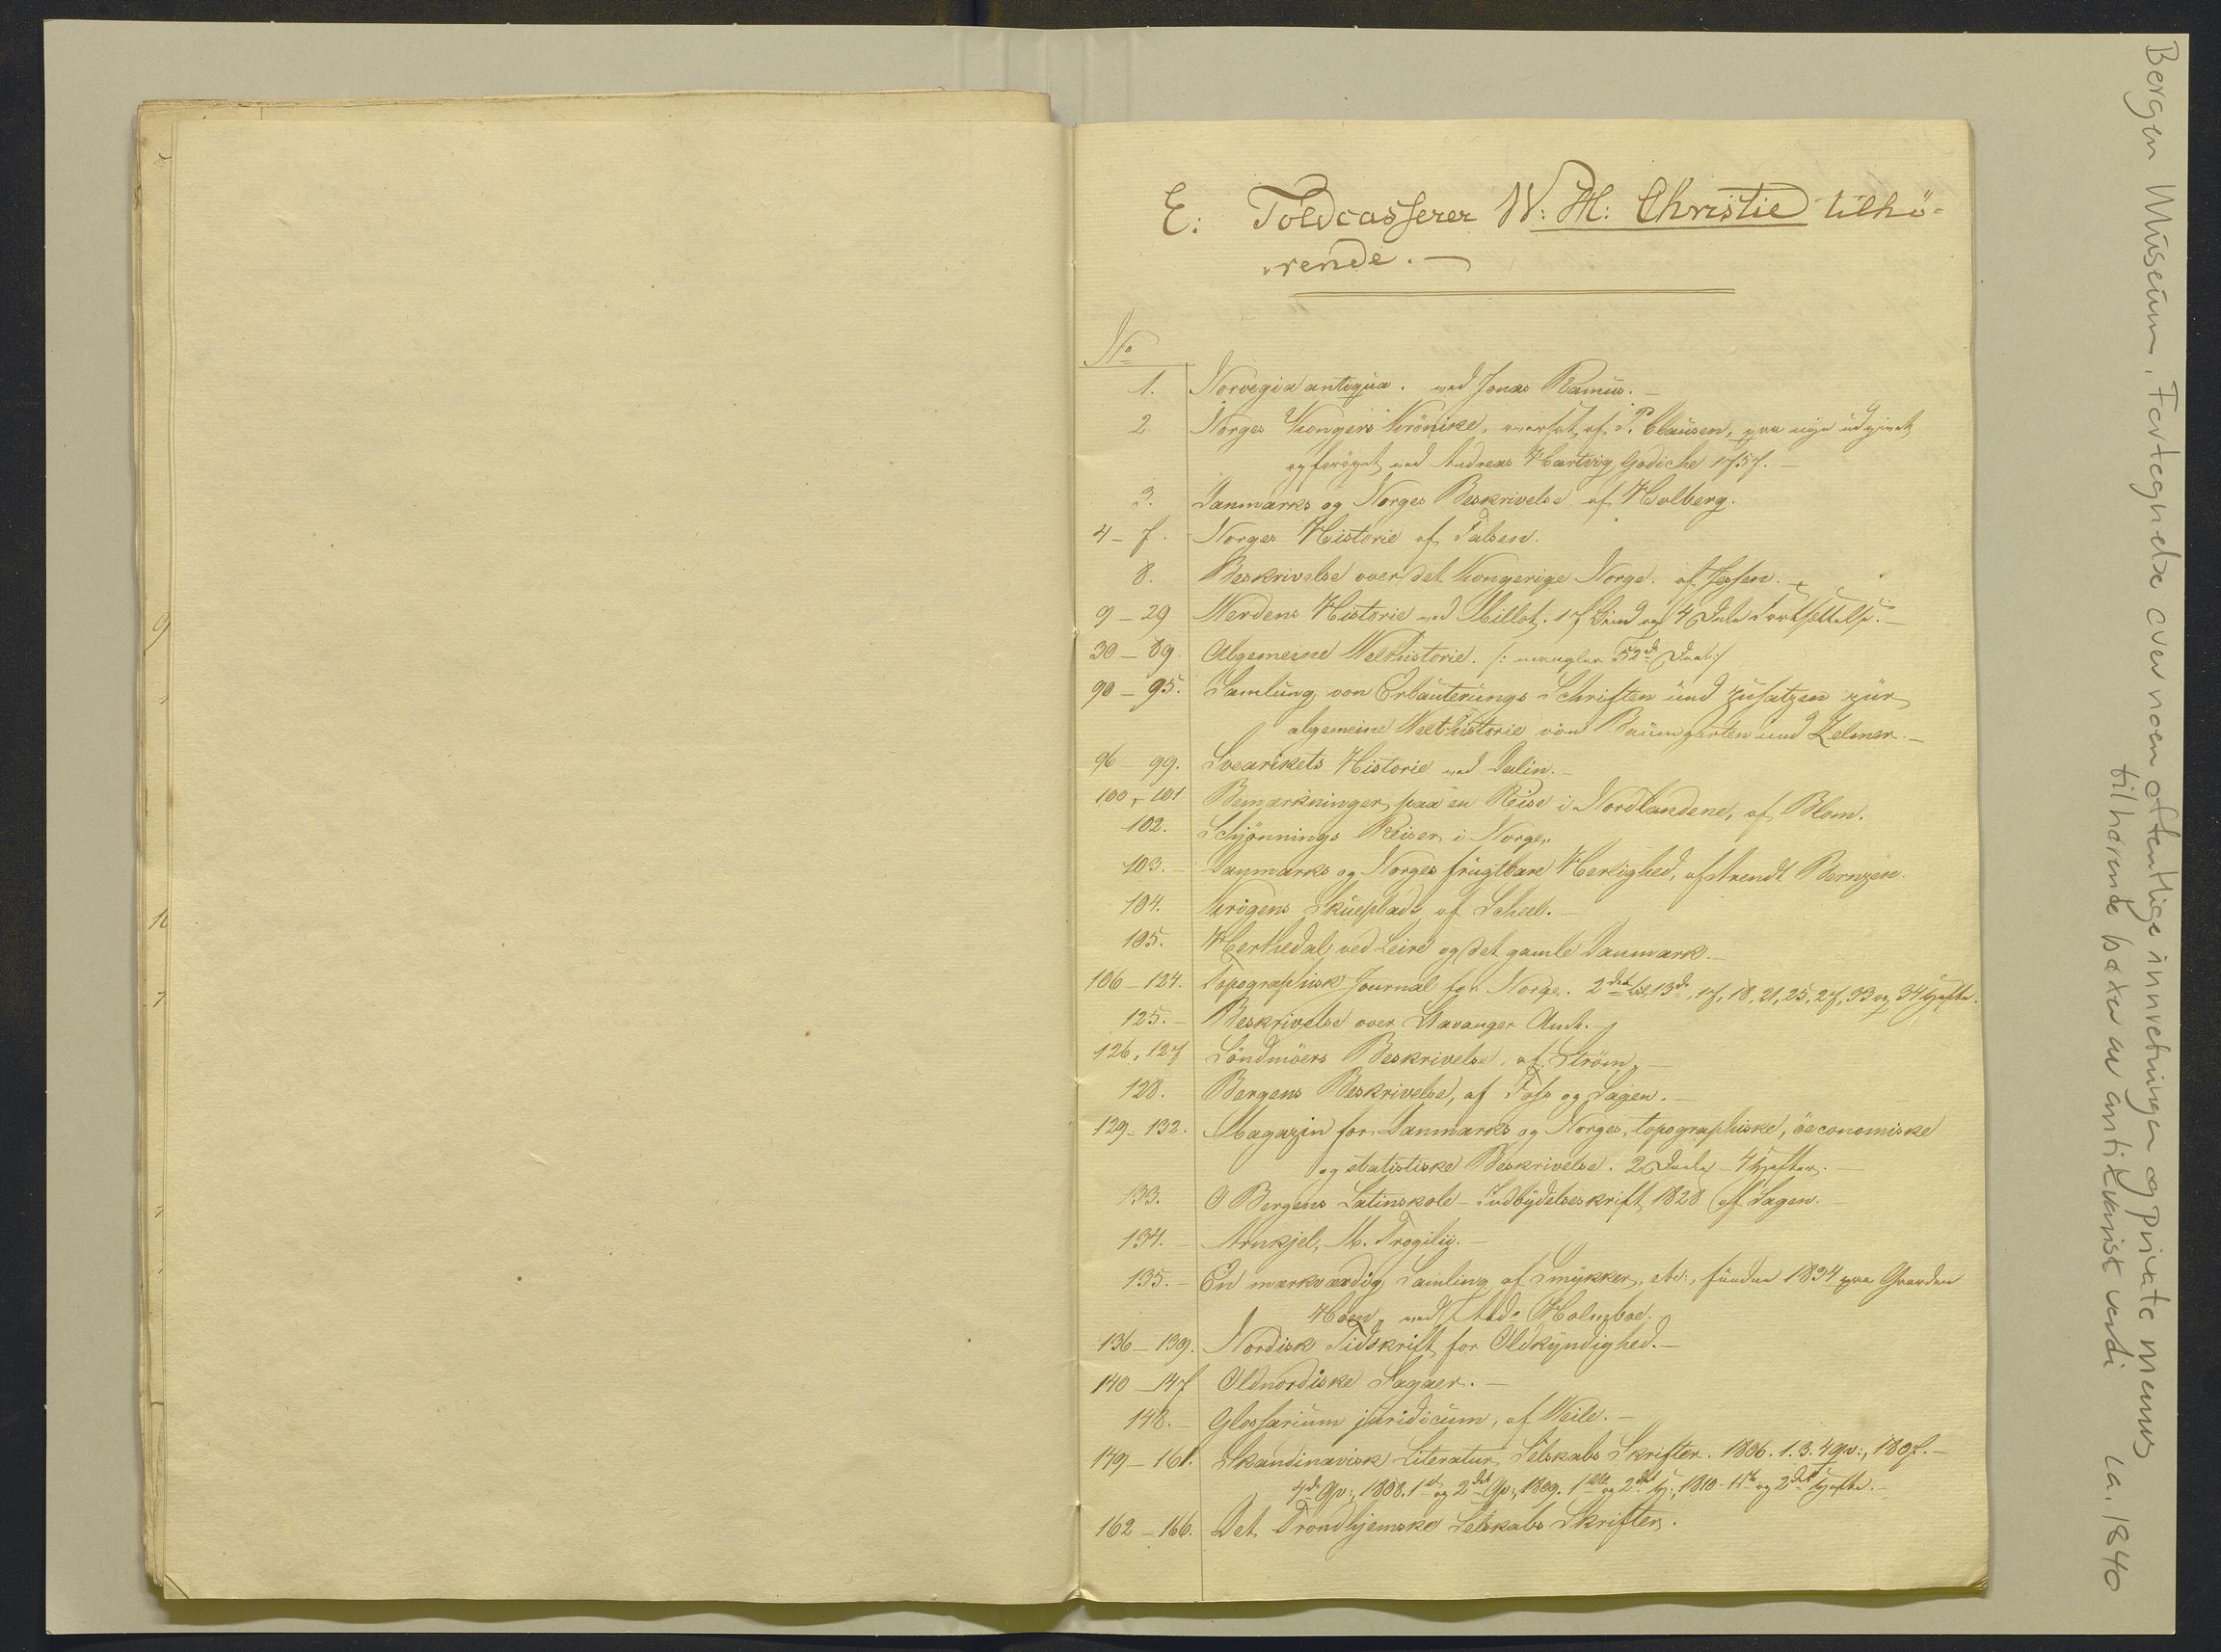 E: Toldcasserer W: M: Christie tilhö-
rende. —
No
1. Norvegia antiqua. ved Jonas Ramus. —
2. Norges Kongers Krönike, oversat af P. Clausen, paa nye udgivet
og forøget ved Andreas Hartvig Godiche 1757. —
3. Danmarks og Norges Beskrivelse af Holberg.
4 – 7. Norges Historie af Falsen.
8. Beskrivelse over det Kongerige Norge. af Jessen. —
9 – 29 Verdens Historie ved Millot. 17 Bind og 4 Dele Fortsettelse. —
30 – 89. Algemeine Welthistorie. /: mangler 52de Deel :/
90 – 95. Samlung von Erlauterungs Schriften und Zusatzen zur
algemeine Welthistorie von Baumgarten und Zelmer. —
96 – 99. Svearikets Historie ved Dalin. —
100, – 101 Bemærkninger paa en Reise i Nordlandene, af Blom.
102. Schjønnings Reiser i Norge.
103. – Danmarks og Norges frugtbare Herlighed, af Arendt Bernzen.
104. Krigens Skueplads, af Scheel. —
105. Herthedal ved Leire og det gamle Danmark. —
106 – 124. Topographisk Journal for Norge. 2det til 13de, 17, 18, 21, 25, 27, 33 og 34 Hefte.
125. – Beskrivelse over Stavanger Amt. —
126, 127 Söndmöers Beskrivelse, af Ström. —
128. Bergens Beskrivelse, af Foss og Sagen. —
129 – 132. Magazin for Danmarks og Norges, topographiske, öeconomiske
og statistiske Beskrivelse. 2 Deele – 4 Hefter. —
133. O Bergens Latinskole – Indbydelsesskrift 1828 af Sagen.
134. – Arnkjel, M. Trogilii. —
135. – En mærkværdig Samling af Smykker, etc:, funden 1834 paa Gaarden
Hoen, ved Holmboe.
136 – 139. Nordisk Tidskrift for Oldkyndighed. —
140 – 147 Oldnordiske Sagaer. —
148. – Glossarium juridicum, af Weile. —
149 – 161. Skandinavisk Literatur Selskabs Skrifter. 1806. 1. 3. 4 Qv:, 1807. —
4de Qv:, 1808. 1ste og 2det Qv:, 1809. 1ste og 2det H:, 1810. 1ste og 2det Hefte. —
162 – 166. Det Trondhjemske Selskabs Skrifter.
Bergen Museum. Fortegnelse over noen offentlige innretninger og private menns
tilhørende bøker av antikvarisk verdi ca. 1840